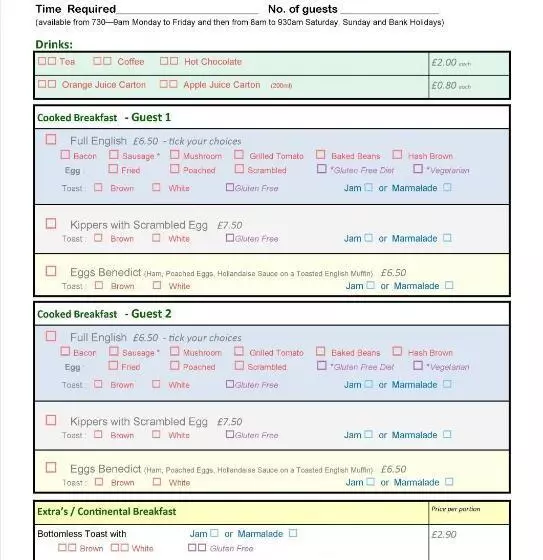 Time Required________________________ No. of guests____________________
(available from 730—9am Monday to Friday and then from 8am to 930am Saturday, Sunday and Bank Holidays)
Drinks:
☐☐ Tea ☐☐ Coffee ☐☐ Hot Chocolate £2.00 each
☐☐ Orange Juice Carton ☐☐ Apple Juice Carton (200ml) £0.80 each
Cooked Breakfast - Guest 1
☐ Full English £6.50 - tick your choices
☐ Bacon ☐ Sausage * ☐ Mushroom ☐ Grilled Tomato ☐ Baked Beans ☐ Hash Brown
Egg ☐ Fried ☐ Poached ☐ Scrambled ☐ *Gluten Free Diet ☐ *Vegetarian
Toast : ☐ Brown ☐ White ☐Gluten Free Jam ☐ or Marmalade ☐
☐ Kippers with Scrambled Egg £7.50
Toast : ☐ Brown ☐ White ☐Gluten Free Jam ☐ or Marmalade ☐
☐ Eggs Benedict (Ham, Poached Eggs, Hollandaise Sauce on a Toasted English Muffin) £6.50
Toast : ☐ Brown ☐ White Jam ☐ or Marmalade ☐
Cooked Breakfast - Guest 2
☐ Full English £6.50 - tick your choices
☐ Bacon ☐ Sausage * ☐ Mushroom ☐ Grilled Tomato ☐ Baked Beans ☐ Hash Brown
Egg ☐ Fried ☐ Poached ☐ Scrambled ☐ *Gluten Free Diet ☐ *Vegetarian
Toast : ☐ Brown ☐ White ☐Gluten Free Jam ☐ or Marmalade ☐
☐ Kippers with Scrambled Egg £7.50
Toast : ☐ Brown ☐ White ☐Gluten Free Jam ☐ or Marmalade ☐
☐ Eggs Benedict (Ham, Poached Eggs, Hollandaise Sauce on a Toasted English Muffin) £6.50
Toast : ☐ Brown ☐ White Jam ☐ or Marmalade ☐
Extra's / Continental Breakfast Price per portion
Bottomless Toast with Jam ☐ or Marmalade ☐ £2.90
☐☐ Brown ☐☐ White ☐☐ Gluten Free